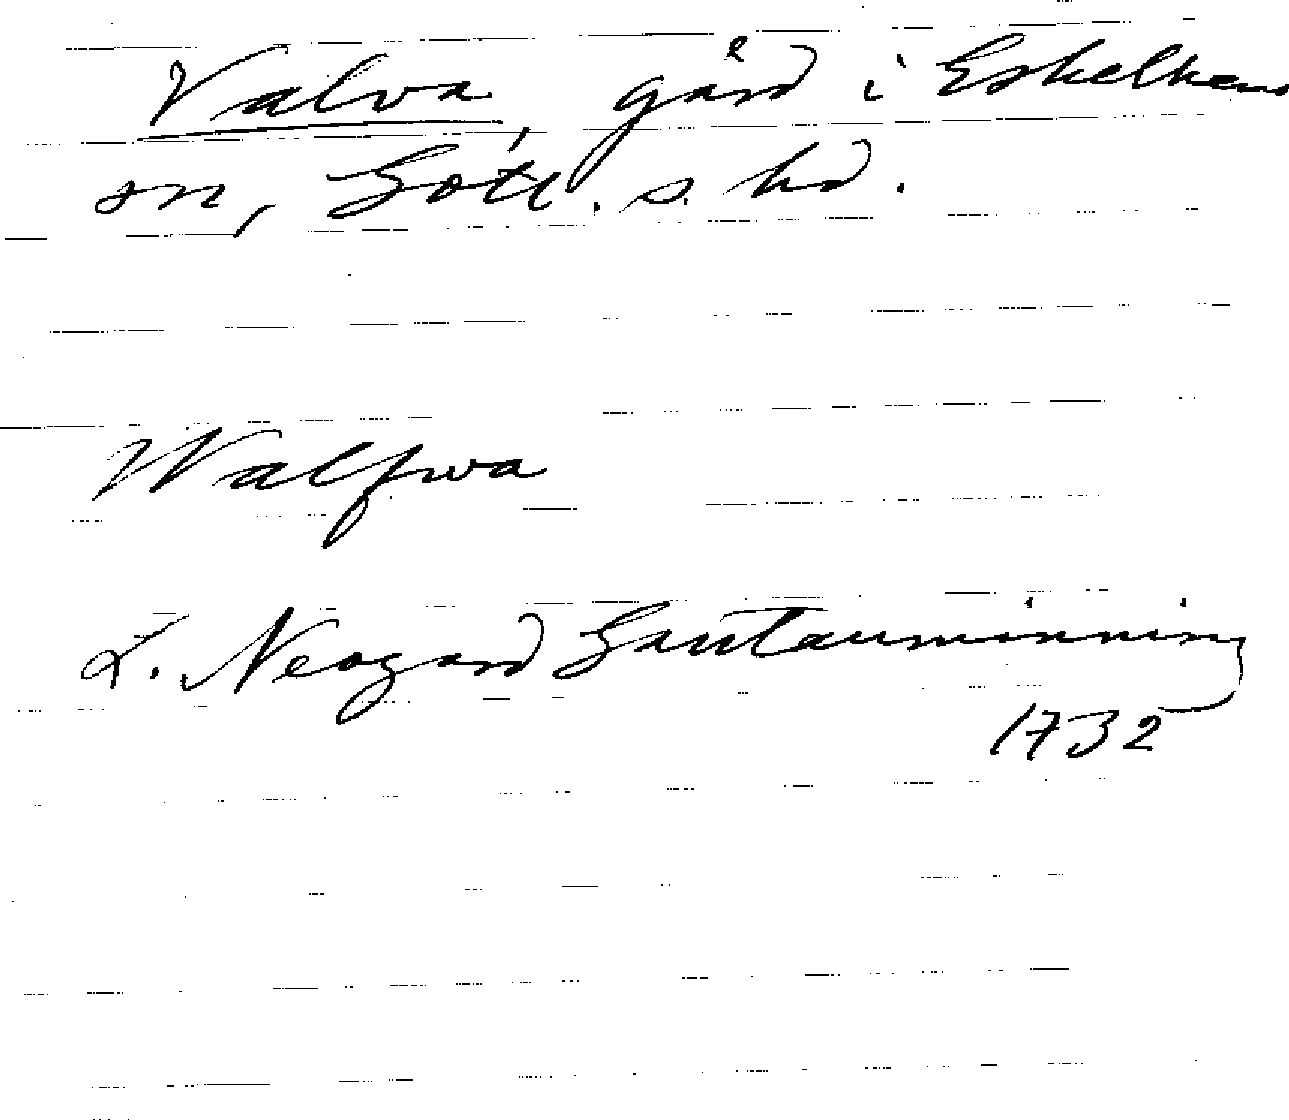 Valva, gård i Eskelhems
sn, Gotl. s. hd.
Walfwa
L. Neogard Gautauminning
1732